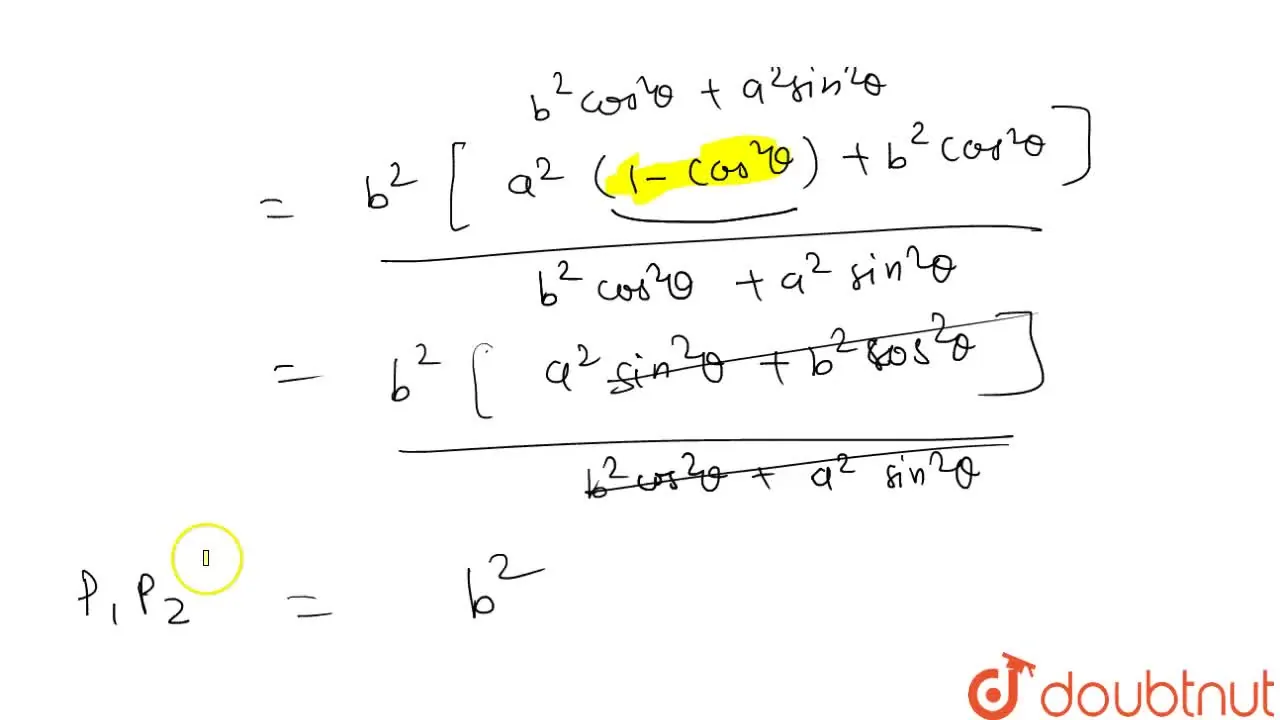 b² cos²θ + a² sin²θ
= b² [ a² (1 - cos²θ) + b² cos²θ ]
b² cos²θ + a² sin²θ
= b² [ a² sin²θ + b² cos²θ ]
b² cos²θ + a² sin²θ
P₁P₂ = b²
doubtnut